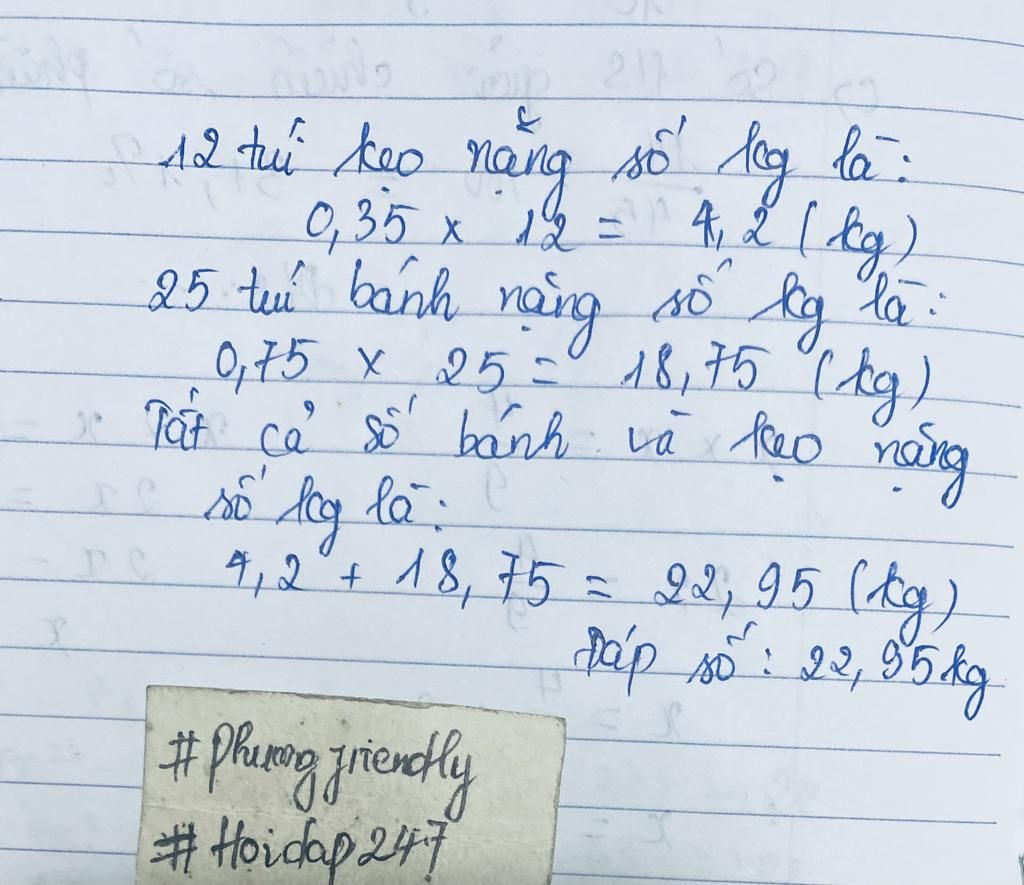 12 túi kẹo nặng số kg là:
0,35 x 12 = 4,2 (kg)
25 túi bánh nặng số kg là:
0,75 x 25 = 18,75 (kg)
Tất cả số bánh và kẹo nặng
số kg là:
4,2 + 18,75 = 22,95 (kg)
Đáp số: 22,95kg
#Phuongfriendly
#Hoidap247